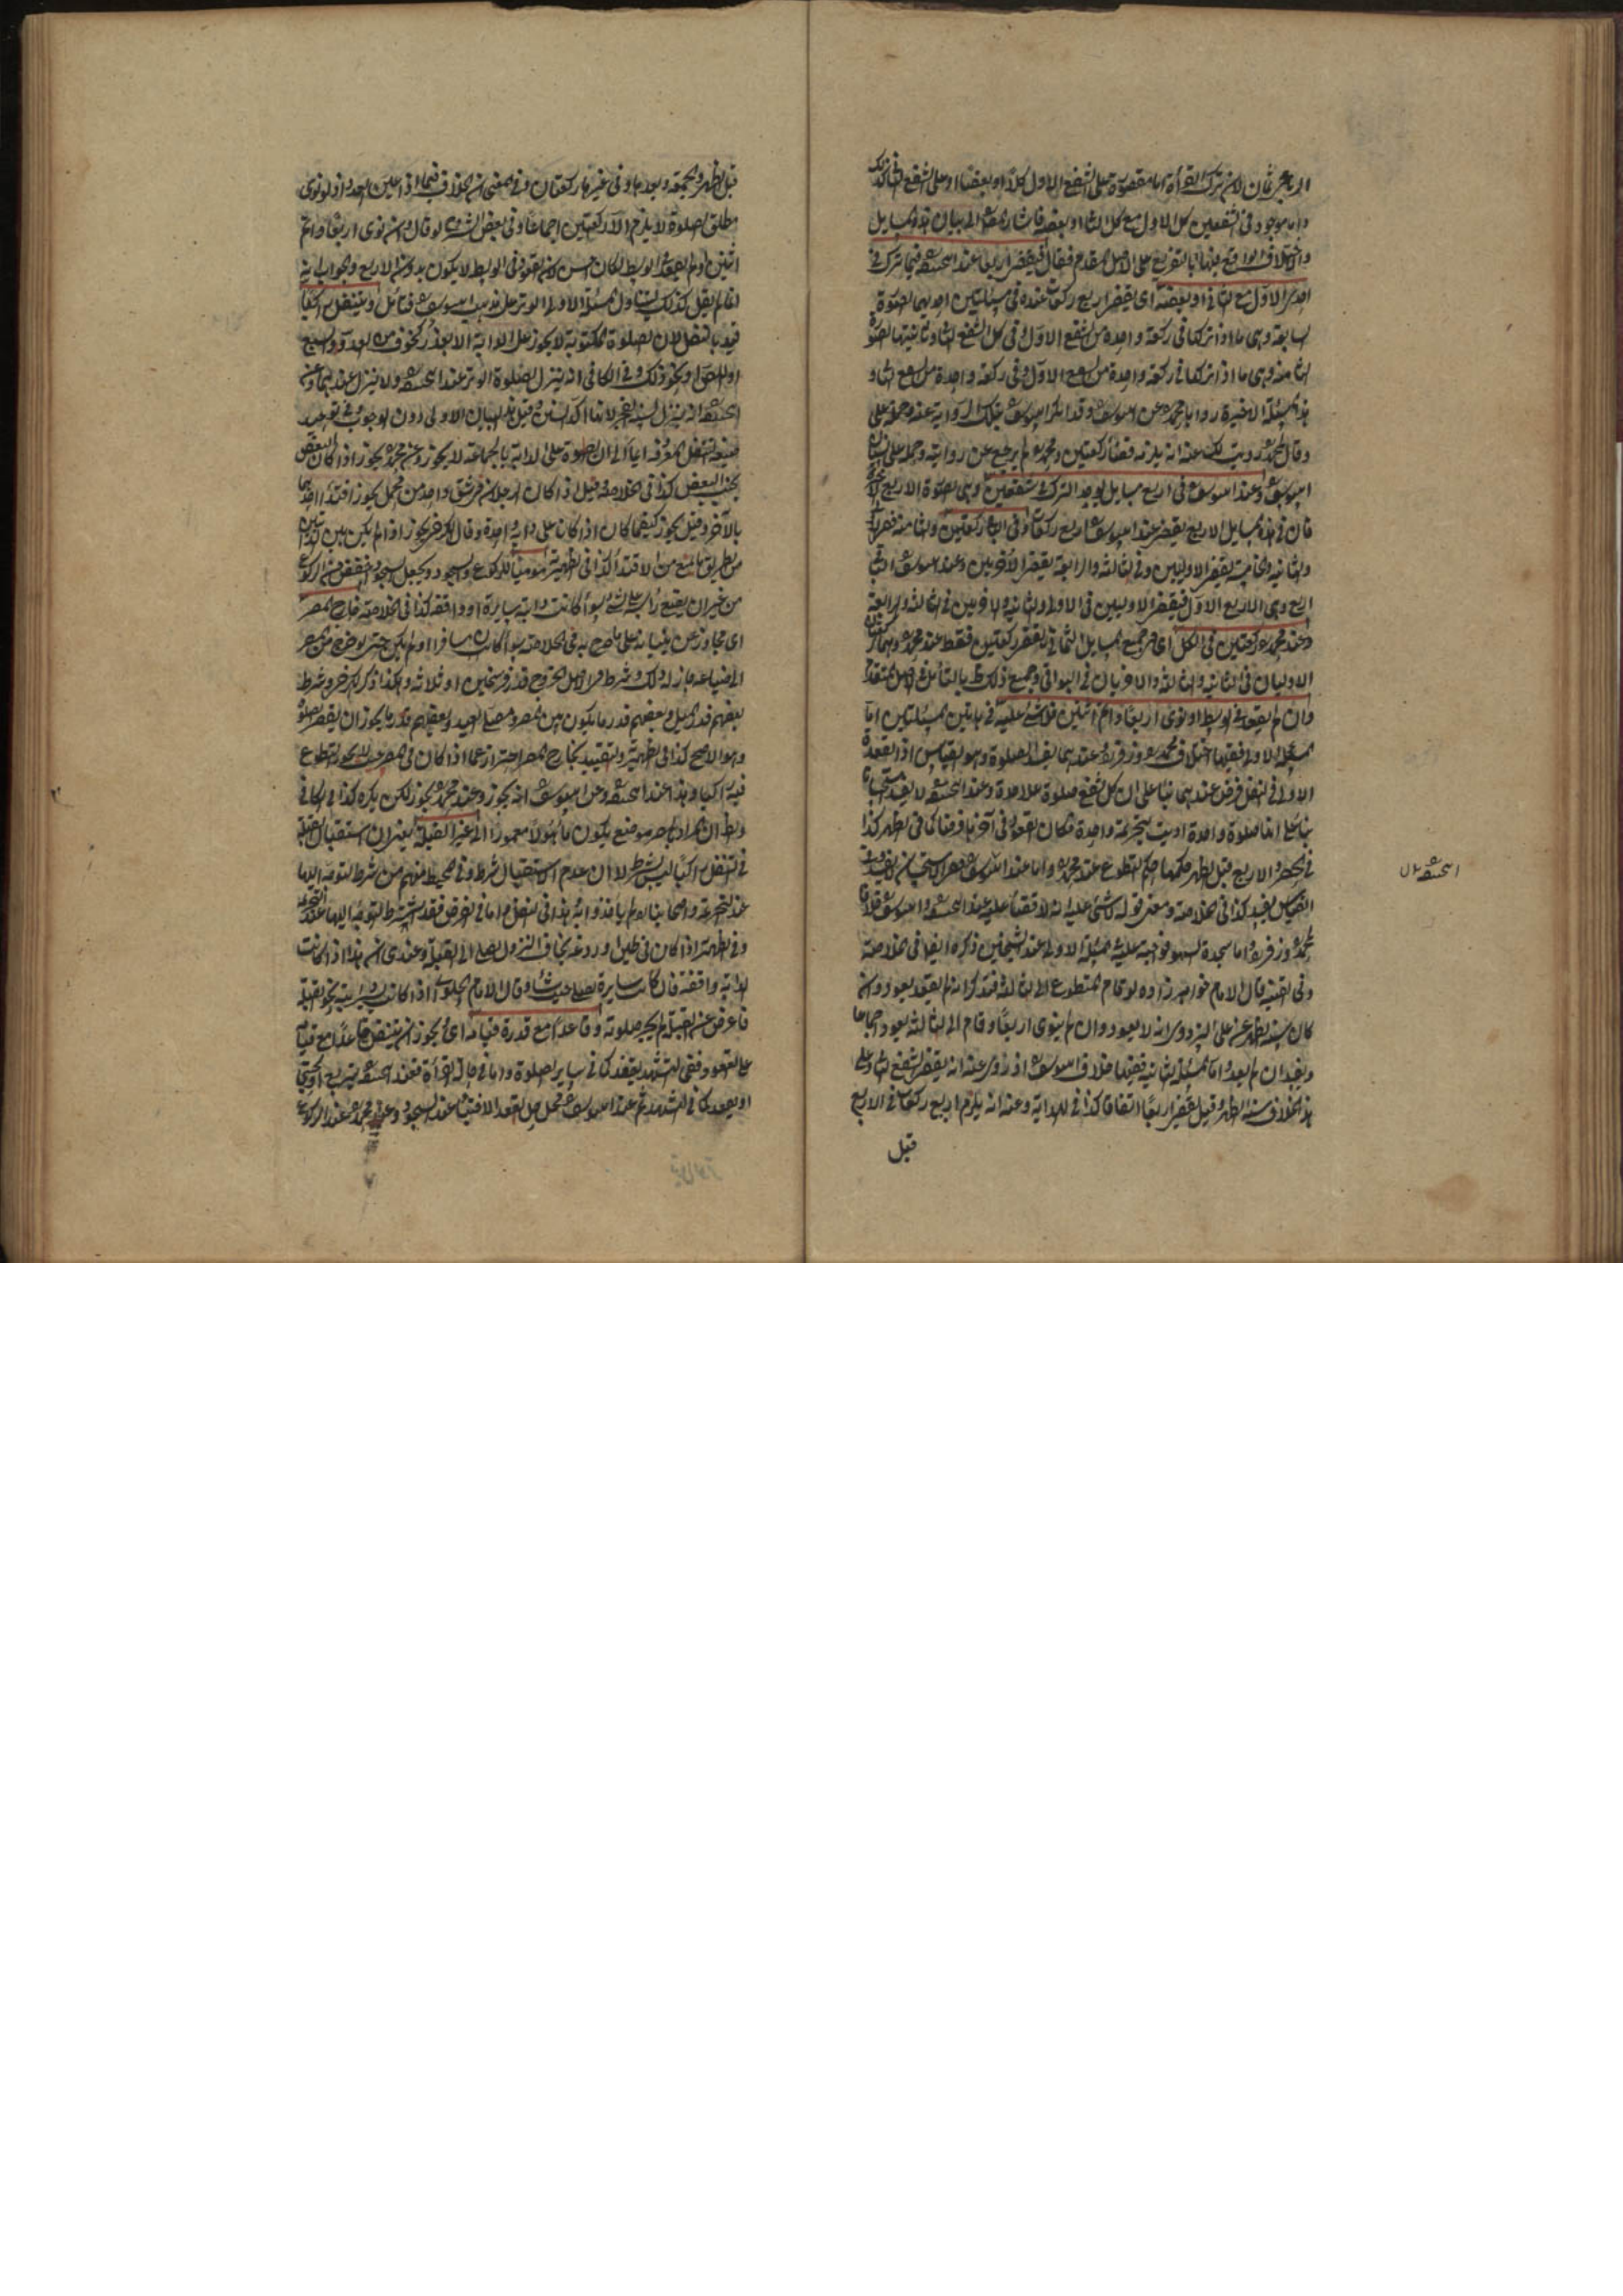 واما موجود في الشفعين كل الاول مع كل الثا او بعضه فاشار المص الى بيان هذه المسايل
والاختلاف الواقع فيها بالتفريع على الاصل المقدم فقال فيقضي اربعا عند ابيحنيفه فيما ترك في
احدى الاول مع الثاني او بعضه اى يقضي اربع ركعات عنده في مسئلتين احديهما الصورة
السابعة وهى ما اذا تركها في ركعة واحدة من الشفع الاول وفي كل الشفع الثا وثانيتهما الصورة
الثامنة وهى ما اذا تركها في ركعة واحدة من الشفع الاول وفي ركعة واحدة من الشفع الثا و
هذه المسئلة الاخيرة رواها محمد عن ابيوسف وقد انكر ابيوسف تلك الرواية عنه وحمله على
وقال محمد رويت لك عنه انه يلزمه قضاء ركعتين ومحمد لم يرجع عن روايته وحمله على نسيان
ابيوسف وعند ابيوسف في اربع مسايل يوجد الترك في شفعين وهى الصورة الاربع
فان في هذه المسايل الاربع يقضي عند ابيوسف اربع ركعات وفي الباقي ركعتين
والثانيه والخامسة يقضي الاوليين وفي الثالثة والرابعة يقضي الاخريين وعند ابيوسف في
اربع وهى الاربع الاول فيقضي الاوليين في الاولى والثانيه والاخريين في الثالثة والرابعة
وعند محمد ركعتين في الكل اى في جميع المسايل الثمانى يقضي ركعتين فقط عند محمد وهما
الاوليان في الثانية والثالثة والاخريان في البواقى وجميع ذلك ظ بالتأمل في الاصل المتقدم
وان لم يقعد في الوسط او نوى اربعا واتم اثنين فلا شئ عليه في هاتين المسئلتين اما
المسئلة الاولى ففيها اختلاف محمد وزفر فان عندهما يفسد الصلوة وهو القياس اذ القعدة
الاولى في النفل فرض عندهما بناء على ان كل شفع صلوة على حدة وعند ابيحنيفه لا يفسد استحسانا
بناء على انها صلوة واحدة اديت بتحريمة واحدة فكان القعود في آخرها فرضا كما في الظهر كذا
القياس يفسد كذا في الخلاصة ومعنى قوله لا شئ عليه انه لا قضاء عليه عند ابيحنيفه وابيوسف خلافا
لمحمد وزفر واما سجدة السهو فواجبة عليه في المسئلة الاولى عند الشيخين ذكره ايضا في الخلاصة
وفي القنية قال الامام خواهرزاده لو قام المتطوع الى الثالثة فتذكر انه لم يقعد يعود وان
كان سنة الظهر عن على البزدوى انه لا يعود وان لم ينوى اربعا وقام الى الثالثة يعود اجماعا
ويفسد ان لم يعد واما المسئلة الثانية ففيها خلاف ابيوسف اذ روى عنه انه يقضي الشفع الثا وعلى
هذا الخلاف سنة الظهر وقيل يقضي اربعا اتفاقا كذا في الهداية وعنه انه يلزم اربع ركعات في الاربع
قبل
قبل الظهر والجمعة وبعدها وفي غيرها ركعتان وفي المغنى ان الخلاف فيما اذا عين العدد اذ لو نوى
مطلق الصلوة لا يلزم الا ركعتين اجماعا وفي بعض الشروح لو قال وان نوى اربعا واتم
اثنين او لم يقعد في الوسط لكان احسن لان القعود في الوسط لا يكون بدون الاربع والجواب انه
انما لم يقل كذلك ليتناول المسئلة الاولى الوتر على مذهب ابيوسف فتأمل ويتنفل راكبا
قيد بالنفل لان الصلوة المكتوبة لا يجوز على الدابة الا بعذر كخوف من العدو والسبع
او اللص او نحو ذلك وفي الكافى انه ينزل لصلوة الوتر عند ابيحنيفه ولا ينزل عندهما وعن
ابيحنيفه انه ينزل لسنة الفجر لانها آكد السنن وقيل هذا لبيان الاولى دون الوجوب وفي توحيد
صيغة يتنفل المعرفه ايماء الى ان الصلوة على الدابة بالجماعة لا يجوز وعن محمد يجوز اذا كان البعض
بجنب البعض كذا في الخلاصة وقيل اذا كان الرجلان في شق واحد من محمل يجوز اقتداء احدهما
بالآخر وقيل يجوز كيفما كان اذا كانا على دابة واحدة وقال الكرخى يجوز اذا لم يكن بين الدابتين
من الطريق ما يمنع من الاقتداء كذا في الظهيرية مومئا للركوع والسجود ويجعل السجود اخفض من الركوع
من غير ان يضع رأسه على شئ سواء كانت دابته سايرة او واقفه كذا في الخلاصة خارج المصر
اى مجاوز عن بنيانه على ما صرح به في الخلاصة سواء كان مسافرا او لم يكن حتى لو خرج من المصر
الى ضياعه جاز له ذلك وشرط في الاصل الخروج قدر فرسخين او ثلاثة وهكذا ذكر الكرخى وشرط
بعضهم قدر الميل وبعضهم قدر ما يكون بين المصر ومصلى العيد وبعضهم قدر ما يجوز ان يقصر الصلوة
وهو الاصح كذا في الظهيرية والتقييد بخارج المصر احتراز عما اذا كان في المصر حيث لا يجوز التطوع
فيه راكبا وهذا عند ابيحنيفه وعن ابيوسف انه يجوز وعند محمد يجوز لكن يكره كذا في الكافى
والظ ان المراد بالمصر موضع يكون مأهولا معمورا الى غير القبلة يعنى ان استقبال القبلة
في التنفل راكبا ليس بشرط لا ان عدم الاستقبال شرط وفي المحيط منهم من شرط التوجه اليها
عند التحريمة واصحابنا لم يأخذوا به هذا في النفل واما في الفرض فقد اشترط التوجه اليها عند التحريمة
وفي الظهيرية اذا كان في طين او ردغة يخاف النزول يصلى الى القبلة وعندى ان هذا اذا كانت
الدابة واقفة فان كانت سايرة يصلى حيث شاء وقال الامام الحلوانى اذا كانت دابته نحو القبلة
فاعرض عن القبلة لم يجز صلوته وقاعدا مع قدرة قيامه اى يجوز ان يتنفل قاعدا مع قيام
على القعود وفي التشهد يقعد كما في ساير الصلوة واما في حالة القراءة فعند ابيحنيفه يتربع او يحتبى
او يقعد كما في التشهد ثم عند ابيوسف يحمل هل يقعد الافتتاح عند السجود وعند محمد عند الركوع